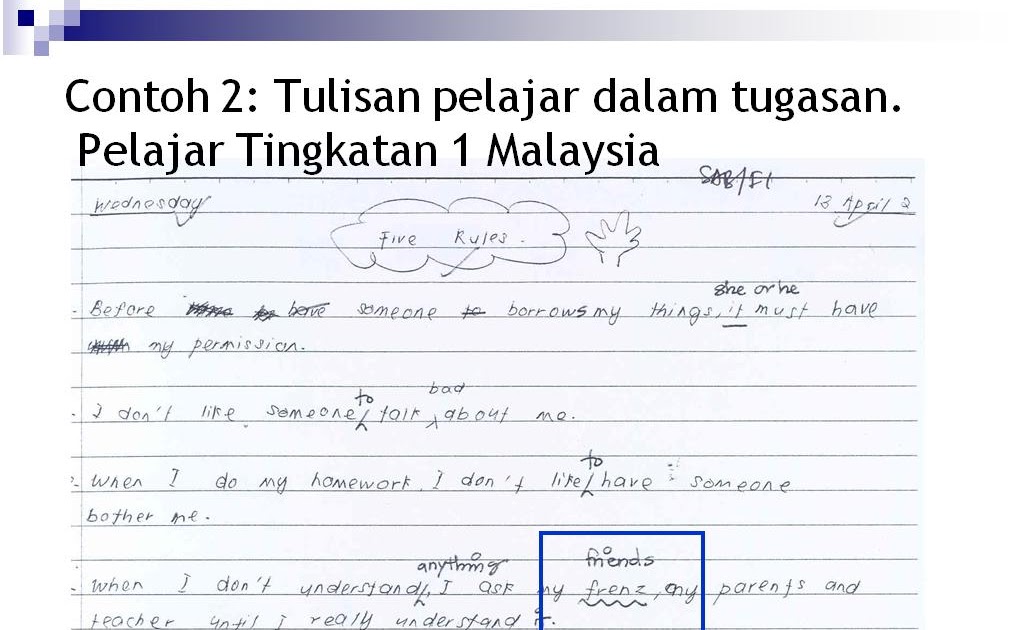 Contoh 2: Tulisan pelajar dalam tugasan.
Pelajar Tingkatan 1 Malaysia
Wednesday
13 April 2
Five Rules.
she or he
Before someone to borrows my things, it must have
my permission.
to bad
I don't like someone talk about me.
to
When I do my homework, I don't like have someone
bother me.
anything friends
When I don't understand, I ask my frenz, my parents and
teacher until I really understand it.